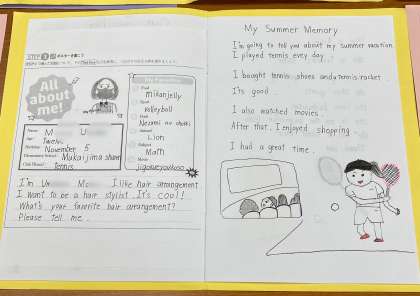 STEP 3
All about me!
My Favorites
Food
mikanjelly
Sport
volleyball
Book
Animal
Lion
Subject
Math
Movie
Name: M U
Age: Twelve
Birthday: November 5
Elementary School: Mukaijima
Club (Team): Tennis
I'm U M. I like hair arrangement
I want to be a hair stylist. It's cool!
What's your favorite hair arrangement?
Please tell me.
My Summer Memory
I'm going to tell you about my summer vacation.
I played tennis every day.
I bought tennis shoes and a tennis racket.
It's good.
I also watched movies.
After that, I enjoyed shopping.
I had a great time.